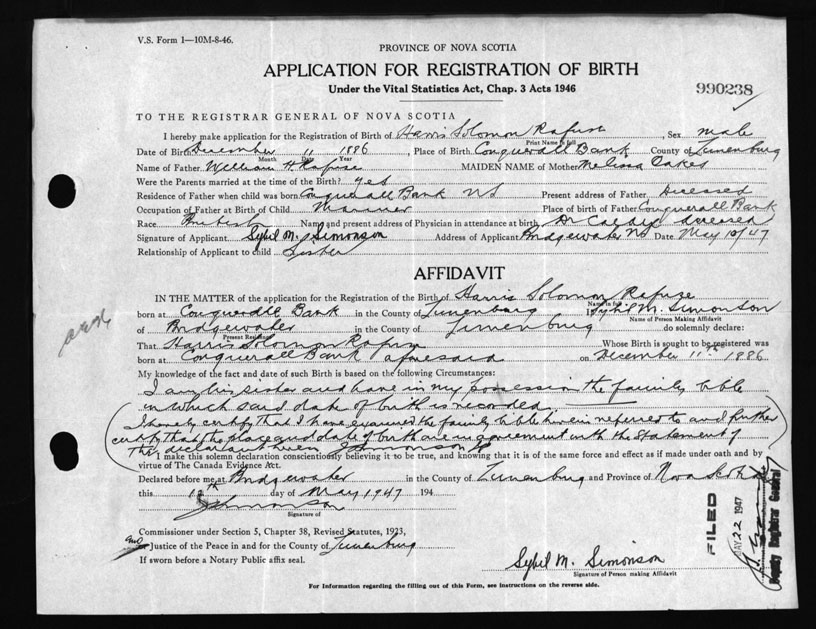 V.S. Form 1—10M-8-46.
PROVINCE OF NOVA SCOTIA
APPLICATION FOR REGISTRATION OF BIRTH
Under the Vital Statistics Act, Chap. 3 Acts 1946
990238
TO THE REGISTRAR GENERAL OF NOVA SCOTIA
I hereby make application for the Registration of Birth of Harris Solomon Rafuse, Sex male
Print Name in full
Date of Birth December 11 1886 Place of Birth Conquerall Bank County of Lunenburg
Month Date Year
Name of Father William H. Rafuse MAIDEN NAME of Mother Melissa Oakes
Were the Parents married at the time of the Birth? yes
Residence of Father when child was born Conquerall Bank NS Present address of Father Deceased
Occupation of Father at Birth of Child Mariner Place of birth of Father Conquerall Bank
Race Name and present address of Physician in attendance at birth Dr deceased
Signature of Applicant Sybil M. Simonson Address of Applicant Bridgewater NS Date May 10/47
Relationship of Applicant to child Sister
AFFIDAVIT
IN THE MATTER of the application for the Registration of the Birth of Harris Solomon Rafuse
Name in full
born at Conquerall Bank in the County of Lunenburg I Sybil M. Simonson
Name of Person Making Affidavit
of Bridgewater in the County of Lunenburg do solemnly declare:
Present Residence
That Harris Solomon Rafuse Whose Birth is sought to be registered was
born at Conquerall Bank aforesaid on December 11th 1886
My knowledge of the fact and date of such Birth is based on the following Circumstances:
I am his sister and have in my possession the family bible
in which said date of birth is recorded
I hereby certify that I have examined the family bible herein referred to and further
certify that the place and date of birth are in agreement with the statement of
the declarant herein
I make this solemn declaration conscientiously believing it to be true, and knowing that it is of the same force and effect as if made under oath and by
virtue of The Canada Evidence Act.
Declared before me at Bridgewater in the County of Lunenburg and Province of Nova Scotia
this day of May 1947 194
Signature of
Commissioner under Section 5, Chapter 38, Revised Statutes, 1923,
and
or Justice of the Peace in and for the County of Lunenburg
If sworn before a Notary Public affix seal.
Sybil M. Simonson
Signature of Person making Affidavit
For Information regarding the filling out of this Form, see instructions on the reverse side.
FILED
MAY 22 1947
Deputy Registrar General